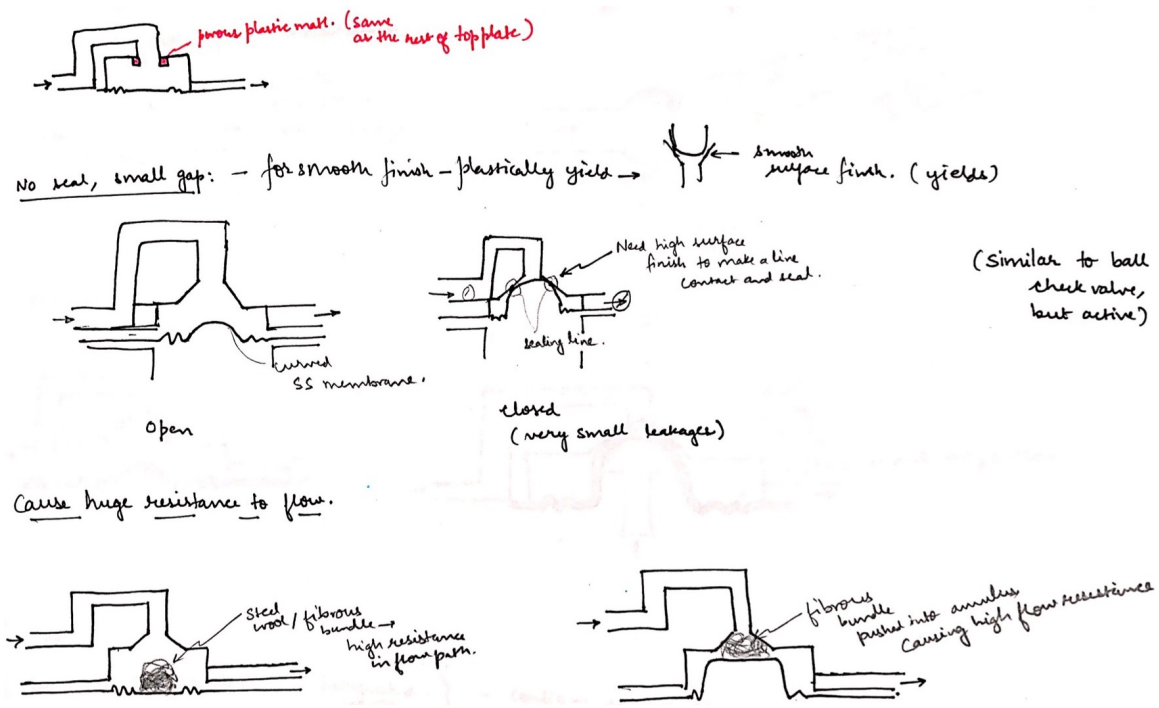 porous plastic matl. (same
as the rest of top plate)
No seal, small gap: - for smooth finish - plastically yield →
smooth
surface finish. (yields)
Need high surface
finish to make a line
contact and seal.
(Similar to ball
check valve,
but active)
sealing line.
curved
SS membrane.
Open
closed
(very small leakages)
Cause huge resistance to flow.
Steel
wool/fibrous
bundle →
high resistance
in flow path.
fibrous
bundle
pushed into annulus
causing high flow resistance